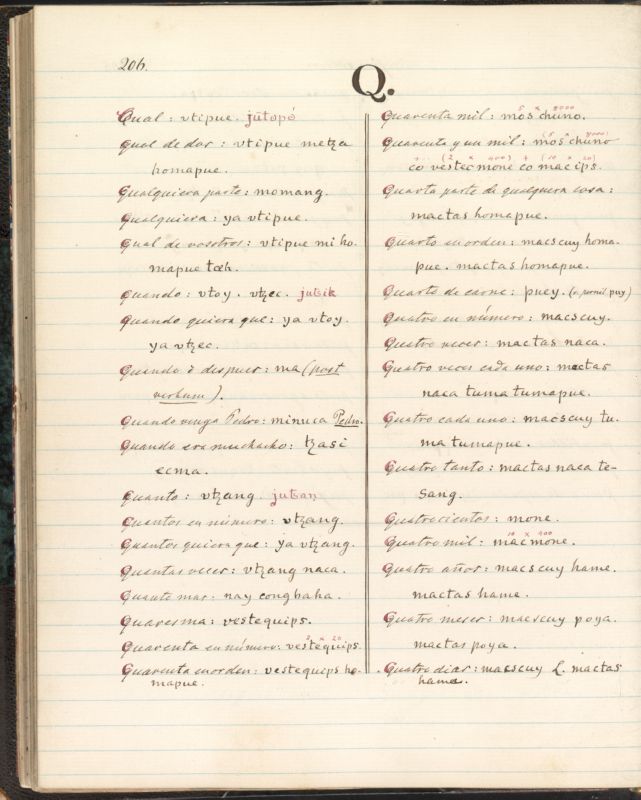 206.
Q.
Qual : vtipue. jūtopó
qual de dos : vtipue metza
homapue.
Qualquiera parte : momang.
Qualquiera : ya vtipue.
Qual de vosotros : vtipue mi ho-
mapue tæh.
Quando : vtoy. vtzec. jutik
Quando quiera que : ya vtoy.
ya vtzec.
Quando ò despues : ma (post
verbum).
Quando venga Pedro : minuca Pedro.
Quando era muchacho : tzasi
ecma.
Quanto : vtzang. jutzan
Quantos en número : vtzang.
Quantos quiera que : ya vtzang.
Quantas veces : vtzang naca.
Quanto mas : nay congbaha.
Quaresma : vestequips.
2 x 20
Quarenta en número : vestequips.
Quarenta en orden : vestequips ho-
mapue.
5 x 8000
Quarenta mil : mos chuno.
(5 x 8000)
Quarenta y un mil : mos chuno
+ (2 x 400) + (10 x 20)
co vestecmone co macips.
Quarta parte de qualquera cosa :
mactas homapue.
Quarto en orden : macscuy homa-
pue. mactas homapue.
Quarto de carne : puey. (v. pernil. puy)
Quatro en número : macscuy.
Quatro veces : mactas naca.
Quatro veces cada uno : mactas
naca tuma tumapue.
Quatro cada uno : macscuy tu-
ma tumapue.
Quatro tanto : mactas naca te-
sang.
Quatrocientos : mone.
10 x 400
Quatro mil : mac mone.
Quatro años : macscuy hame.
mactas hame.
Quatro meses : macscuy poya.
mactas poya.
Quatro dias : macscuy l. mactas
hama.